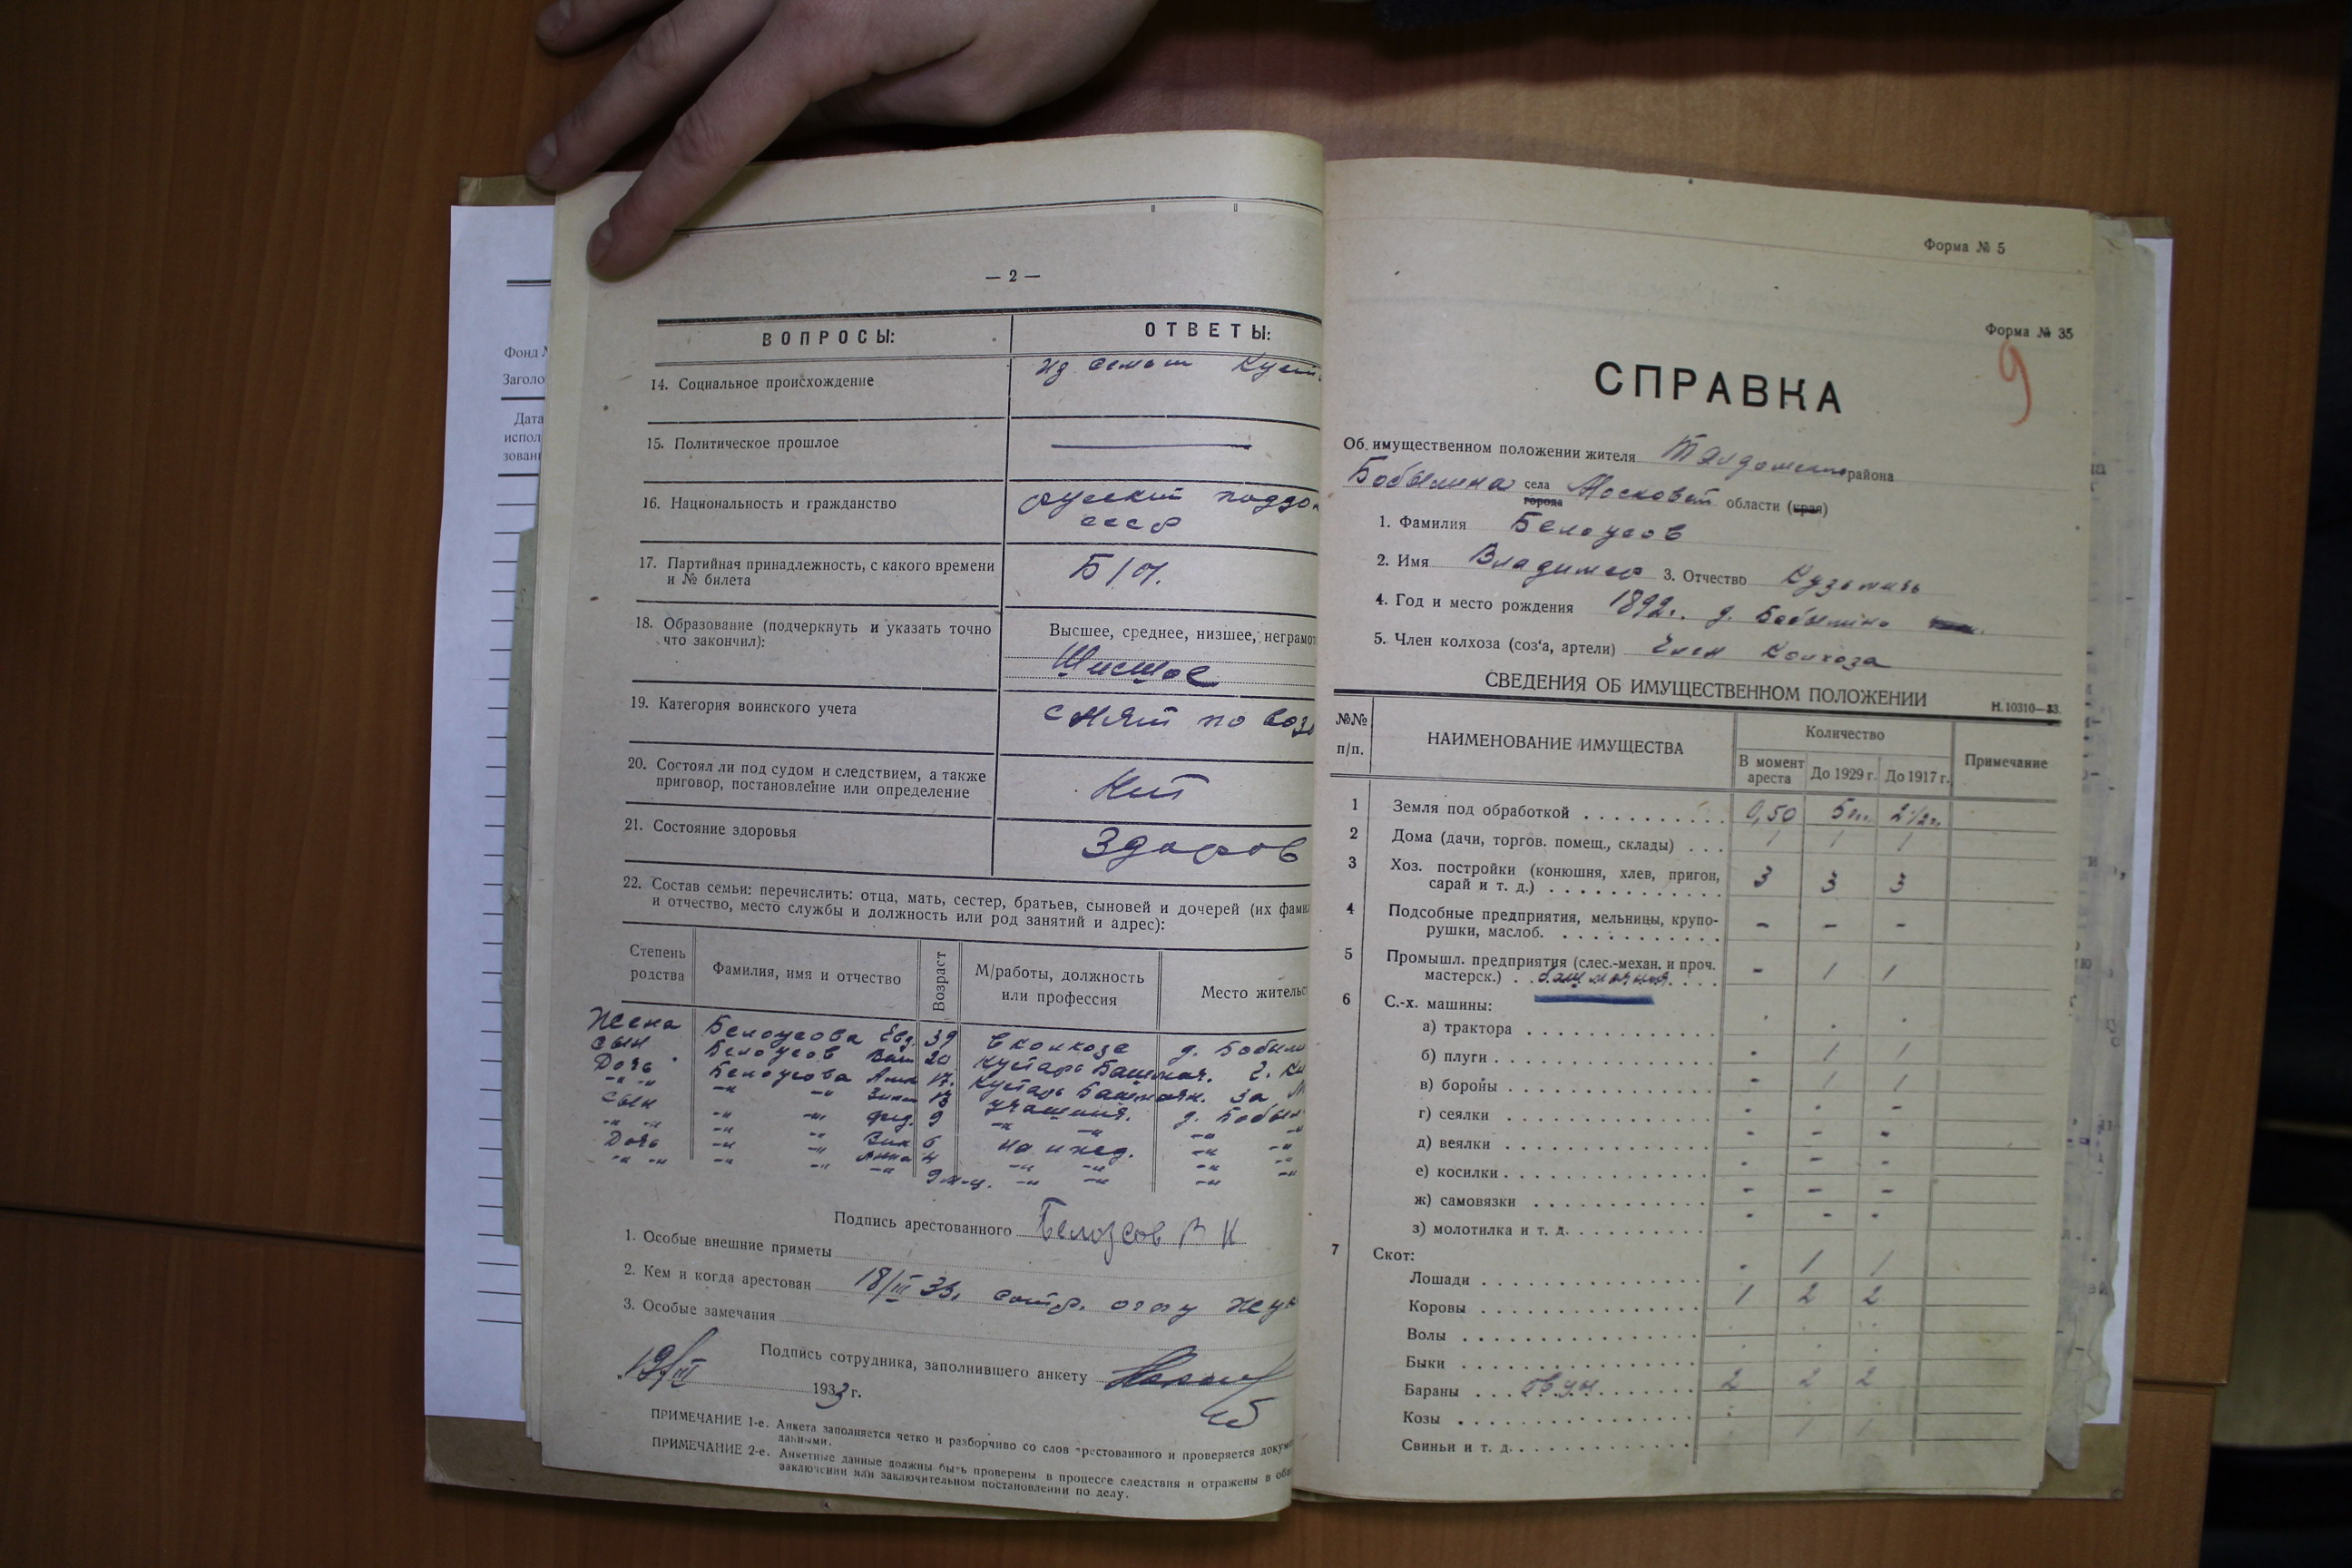 Фонд №
Заголо
Дата
испол
зовани
— 2 —
ВОПРОСЫ: ОТВЕТЫ:
14. Социальное происхождение Из семьи Куст
15. Политическое прошлое
16. Национальность и гражданство русский поддан
СССР
17. Партийная принадлежность, с какого времени и № билета Б/п.
18. Образование (подчеркнуть и указать точно что закончил): Высшее, среднее, низшее, неграмот
Низшее
19. Категория воинского учета снят по воз
20. Состоял ли под судом и следствием, а также приговор, постановление или определение Нет
21. Состояние здоровья Здоров
22. Состав семьи: перечислить: отца, мать, сестер, братьев, сыновей и дочерей (их фами
и отчество, место службы и должность или род занятий и адрес):
Степень родства Фамилия, имя и отчество Возраст М/работы, должность или профессия Место жительс
Жена Белоусова Евд. 39 в колхозе д. Бобыли
сын Белоусов Вас 20 кустарь Башмач. г. Ки
Дочь Белоусова 17. кустарь Башмачн. за М
-"- -"- -"- -"- Зин 13 учащийся. д. Бобыл
сын -"- -"- Фед. 9 -"- -"- -"- -"-
-"- -"- -"- -"- Вик 6 на ижд. -"- -"-
Дочь -"- -"- Анна 4 -"- -"- -"- -"-
-"- -"- -"- -"- -"- 9 м-ц. -"- -"- -"- -"-
Подпись арестованного Белоусов В К
1. Особые внешние приметы
2. Кем и когда арестован 18/III 33. сотр. огпу
3. Особые замечания
Подпись сотрудника, заполнившего анкету
„19/III 1933 г.
ПРИМЕЧАНИЕ 1-е. Анкета заполняется четко и разборчиво со слов арестованного и проверяется докуме
данными.
ПРИМЕЧАНИЕ 2-е. Анкетные данные должны быть проверены в процессе следствия и отражены в обв
заключении или заключительном постановлении по делу.
Форма № 5
Форма № 35
9
СПРАВКА
Об. имущественном положении жителя Талдомского района
Бобылино села Московской области (края)
города
1. Фамилия Белоусов
2. Имя Владимир 3. Отчество Кузьмичь
4. Год и место рождения 1892г. д. Бобылино
5. Член колхоза (соз'а, артели) Член Колхоза
СВЕДЕНИЯ ОБ ИМУЩЕСТВЕННОМ ПОЛОЖЕНИИ
Н.10310—33.
№№ п/п. НАИМЕНОВАНИЕ ИМУЩЕСТВА Количество Примечание
В момент ареста До 1929 г. До 1917 г.
1 Земля под обработкой 0,50 5 2 1/2
2 Дома (дачи, торгов. помещ., склады) 1 1 1
3 Хоз. постройки (конюшня, хлев, пригон, сарай и т. д.) 3 3 3
4 Подсобные предприятия, мельницы, крупорушки, маслоб. - - -
5 Промышл. предприятия (слес.-механ. и проч. мастерск.) башмачная - 1 1
6 С.-х. машины:
а) трактора - - -
б) плуги - 1 1
в) бороны - 1 1
г) сеялки - - -
д) веялки - - -
е) косилки - - -
ж) самовязки - - -
з) молотилка и т. д. - - -
7 Скот:
Лошади - 1 1
Коровы 1 2 2
Волы - - -
Быки - - -
Бараны овцы 2 2 2
Козы
Свиньи и т. д.